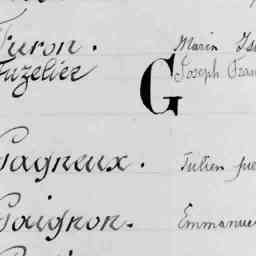 Furon. Marin Is
Fuzelier Joseph Fran
G
Gagneux. Julien
Gaignon. Emmanue